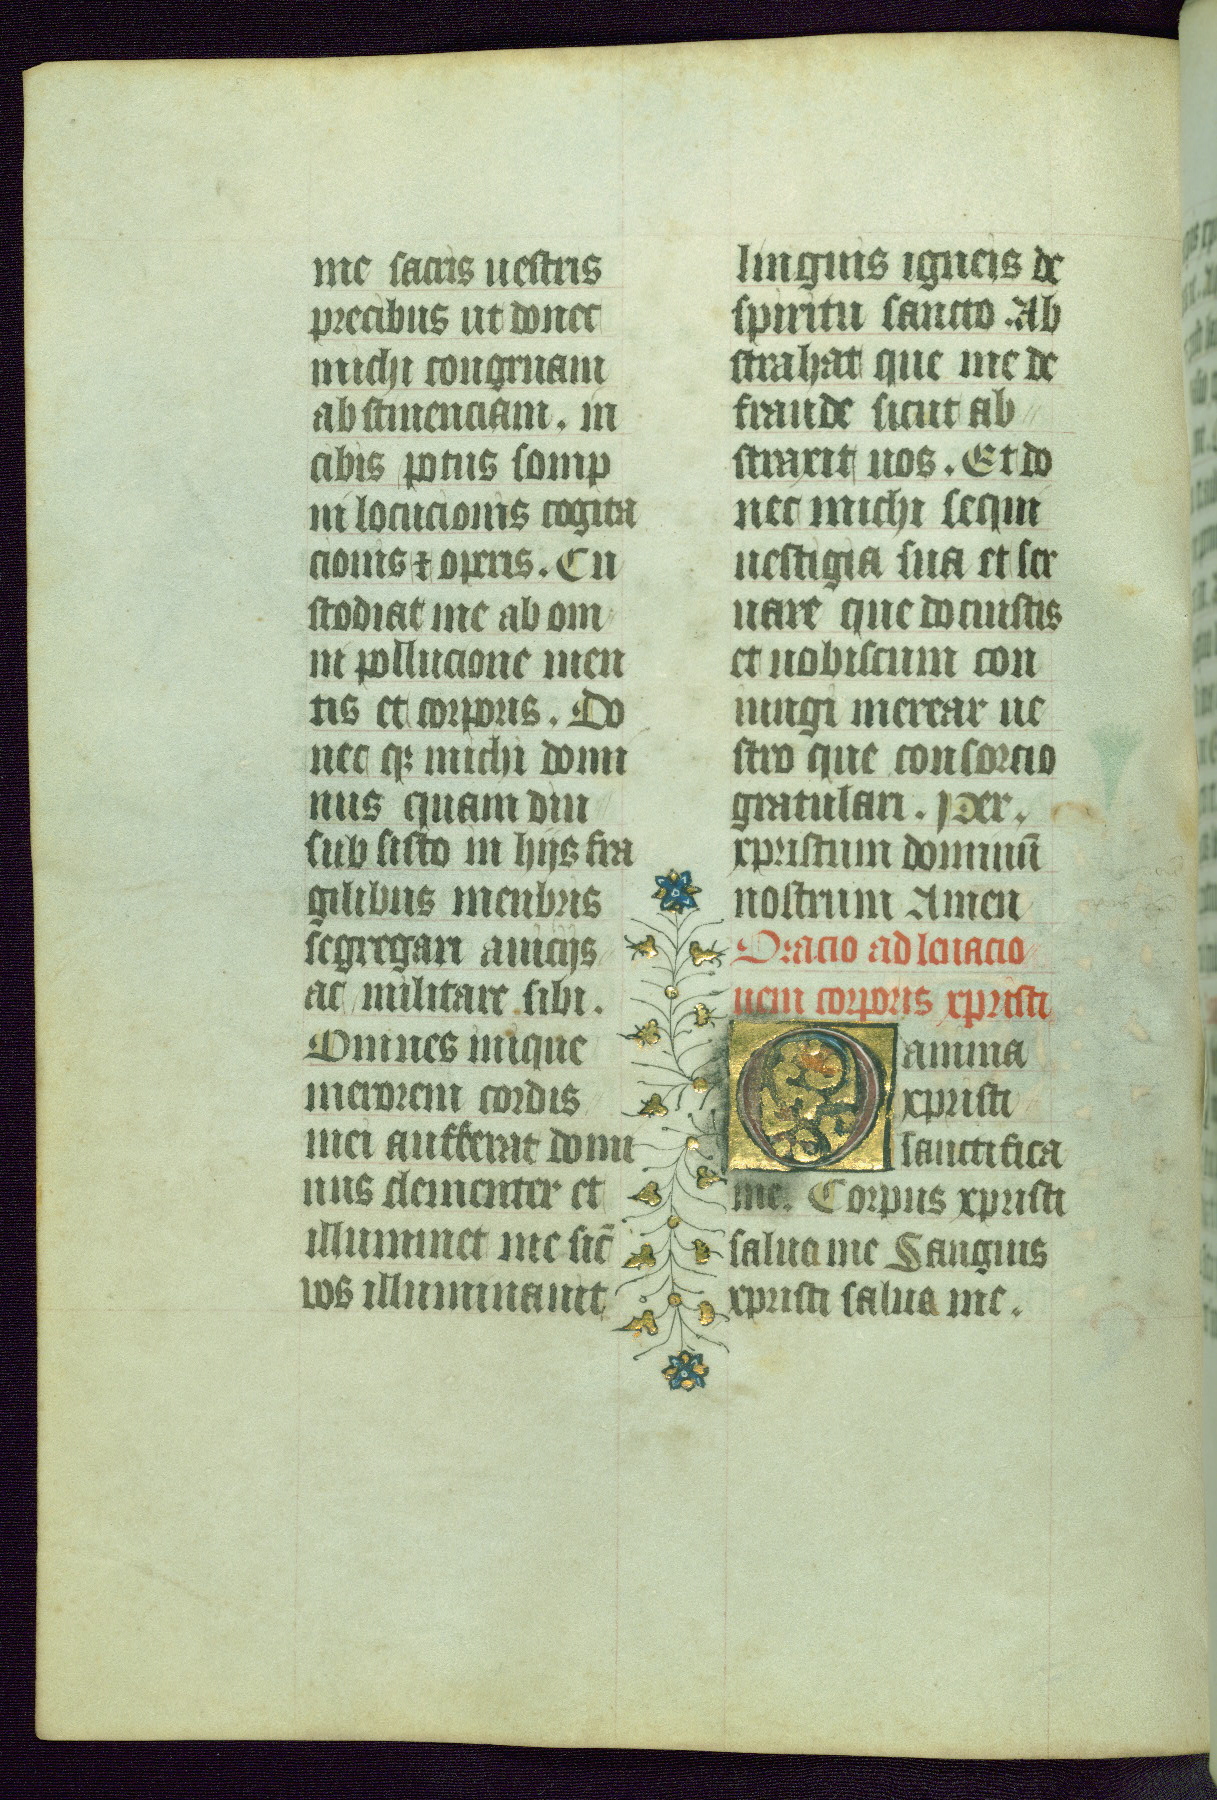 me sacris uestris
precibus ut donet
michi congruam
abstinenciam. in
cibis potus somp
ni locucionis cogita
cionis ⁊ operis. Cu
stodiat me ab om
ni pollucione men
tis et corporis. Do
net qꝫ michi domi
nus quam diu
sub sisto in hijs fra
gilibus menbris
segregari a uicijs
ac militare sibi.
Omnes inique
merorem cordis
mei aufferat domi
nus clementer et
illuminet me sic̄
vos illuminauit
linguis igneis de
spiritu sancto. Ab
strahat que me de
fraude sicut ab
straxit uos. Et do
net michi sequi
uestigia sua et ser
uare que docuistis
et uobiscum con
iungi merear ue
stro que consorcio
gratulari. Per.
xpristum dominū
nostrum Amen
Oracio ad leuacio
nem corporis xpristi
O anima
xpristi
sanctifica
me. Corpus xpristi
salua me Sanguis
xpristi salua me.